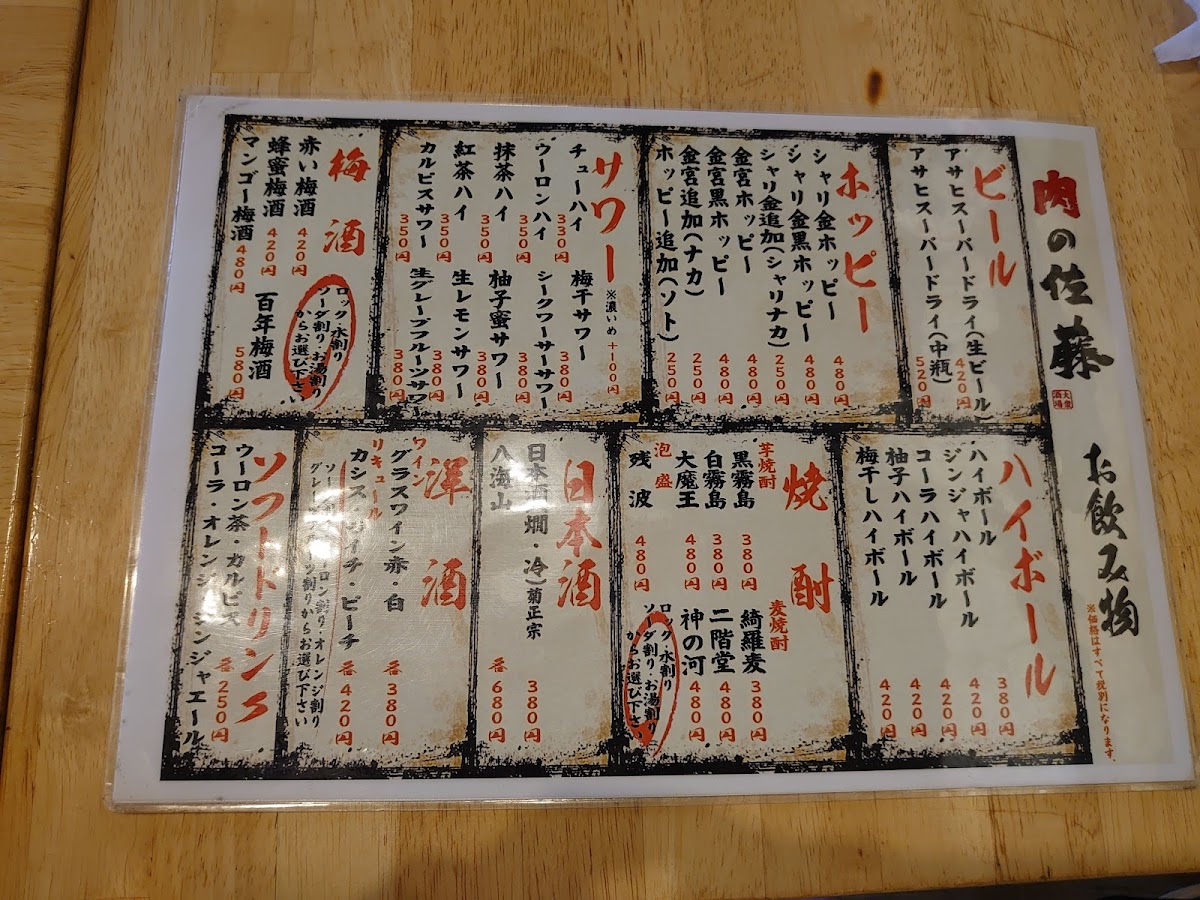 肉の佐藤
大衆酒場
お飲み物
※価格はすべて税別になります。
ビール
アサヒスーパードライ(生ビール 420円
アサヒスーパードライ(中瓶) 520円
ホッピー
シャリ金ホッピー 480円
シャリ金黒ホッピー 480円
シャリ金追加(シャリナカ) 250円
金宮ホッピー 480円
金宮黒ホッピー 480円
金宮追加(ナカ) 250円
ホッピー追加(ソト) 250円
サワー ※濃いめ +100円
チューハイ 330円
ウーロンハイ 350円
抹茶ハイ 350円
紅茶ハイ 350円
カルピスサワー 350円
梅干サワー 380円
シークワーサーサワー 380円
柚子蜜サワー 380円
生レモンサワー 380円
生グレープフルーツサワー 380円
梅酒
赤い梅酒 420円
蜂蜜梅酒 420円
マンゴー梅酒 480円
ロック・水割り
ソーダ割り・お湯割り
からお選び下さい
百年梅酒 580円
ハイボール
ハイボール 380円
ジンジャハイボール 420円
コーラハイボール 420円
柚子ハイボール 420円
梅干しハイボール 420円
焼酎
芋焼酎
黒霧島 380円
白霧島 380円
大魔王 480円
泡盛
残波 480円
麦焼酎
綺羅麦 380円
二階堂 480円
神の河 480円
ロック・水割り
ソーダ割り・お湯割り
からお選び下さい
日本酒
日本酒(燗・冷)菊正宗 380円
八海山 各680円
洋酒
ワイン
グラスワイン赤・白 各380円
リキュール
カシス・ライチ・ピーチ 各420円
ウーロン割り・オレンジ割り
割りからお選び下さい
ソフトドリンク
ウーロン茶・カルピス
コーラ・オレンジ・ジンジャエール 各250円